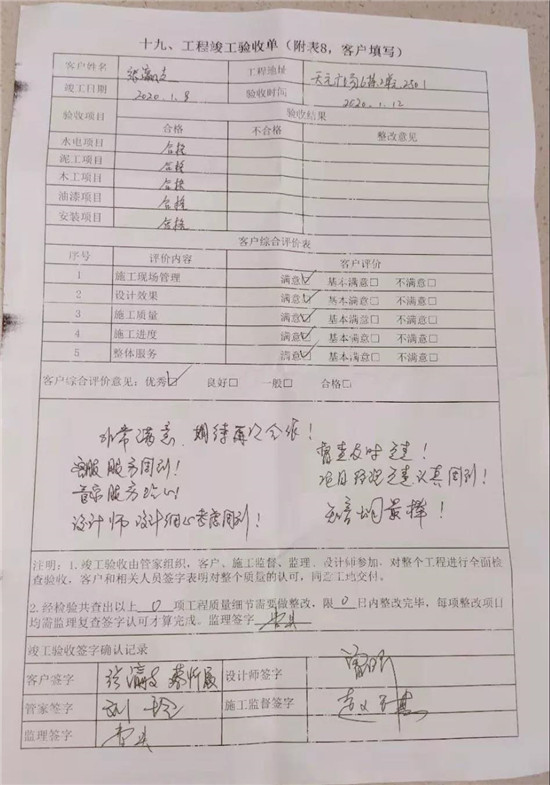 十九、工程竣工验收单（附表8，客户填写）
客户姓名 工程地址
竣工日期 2020.1.8 验收时间 2020.1.12
验收项目 验收结果
合格 不合格 整改意见
水电项目 合格
泥工项目 合格
木工项目 合格
油漆项目 合格
安装项目 合格
客户综合评价表
序号 评价内容 客户评价
1 施工现场管理 满意☑ 基本满意□ 不满意□
2 设计效果 满意☑ 基本满意□ 不满意□
3 施工质量 满意☑ 基本满意□ 不满意□
4 施工进度 满意☑ 基本满意□ 不满意□
5 整体服务 满意☑ 基本满意□ 不满意□
客户综合评价意见：优秀☑ 良好□ 一般□ 合格□
非常满意、期待再次合作！
客服服务周到！
管家服务贴心
设计师设计细心考虑周到！
最棒！
注明：1.竣工验收由管家组织，客户、施工监督、监理、设计师参加，对整个工程进行全面检
查验收，客户和相关人员签字表明对整个质量的认可，同意工地交付。
2.经检验共查出以上 0 项工程质量细节需要做整改，限 0 日内整改完毕，每项整改项目
均需监理复查签字认可才算完成。监理签字
竣工验收签字确认记录
客户签字 设计师签字
管家签字 施工监督签字
监理签字